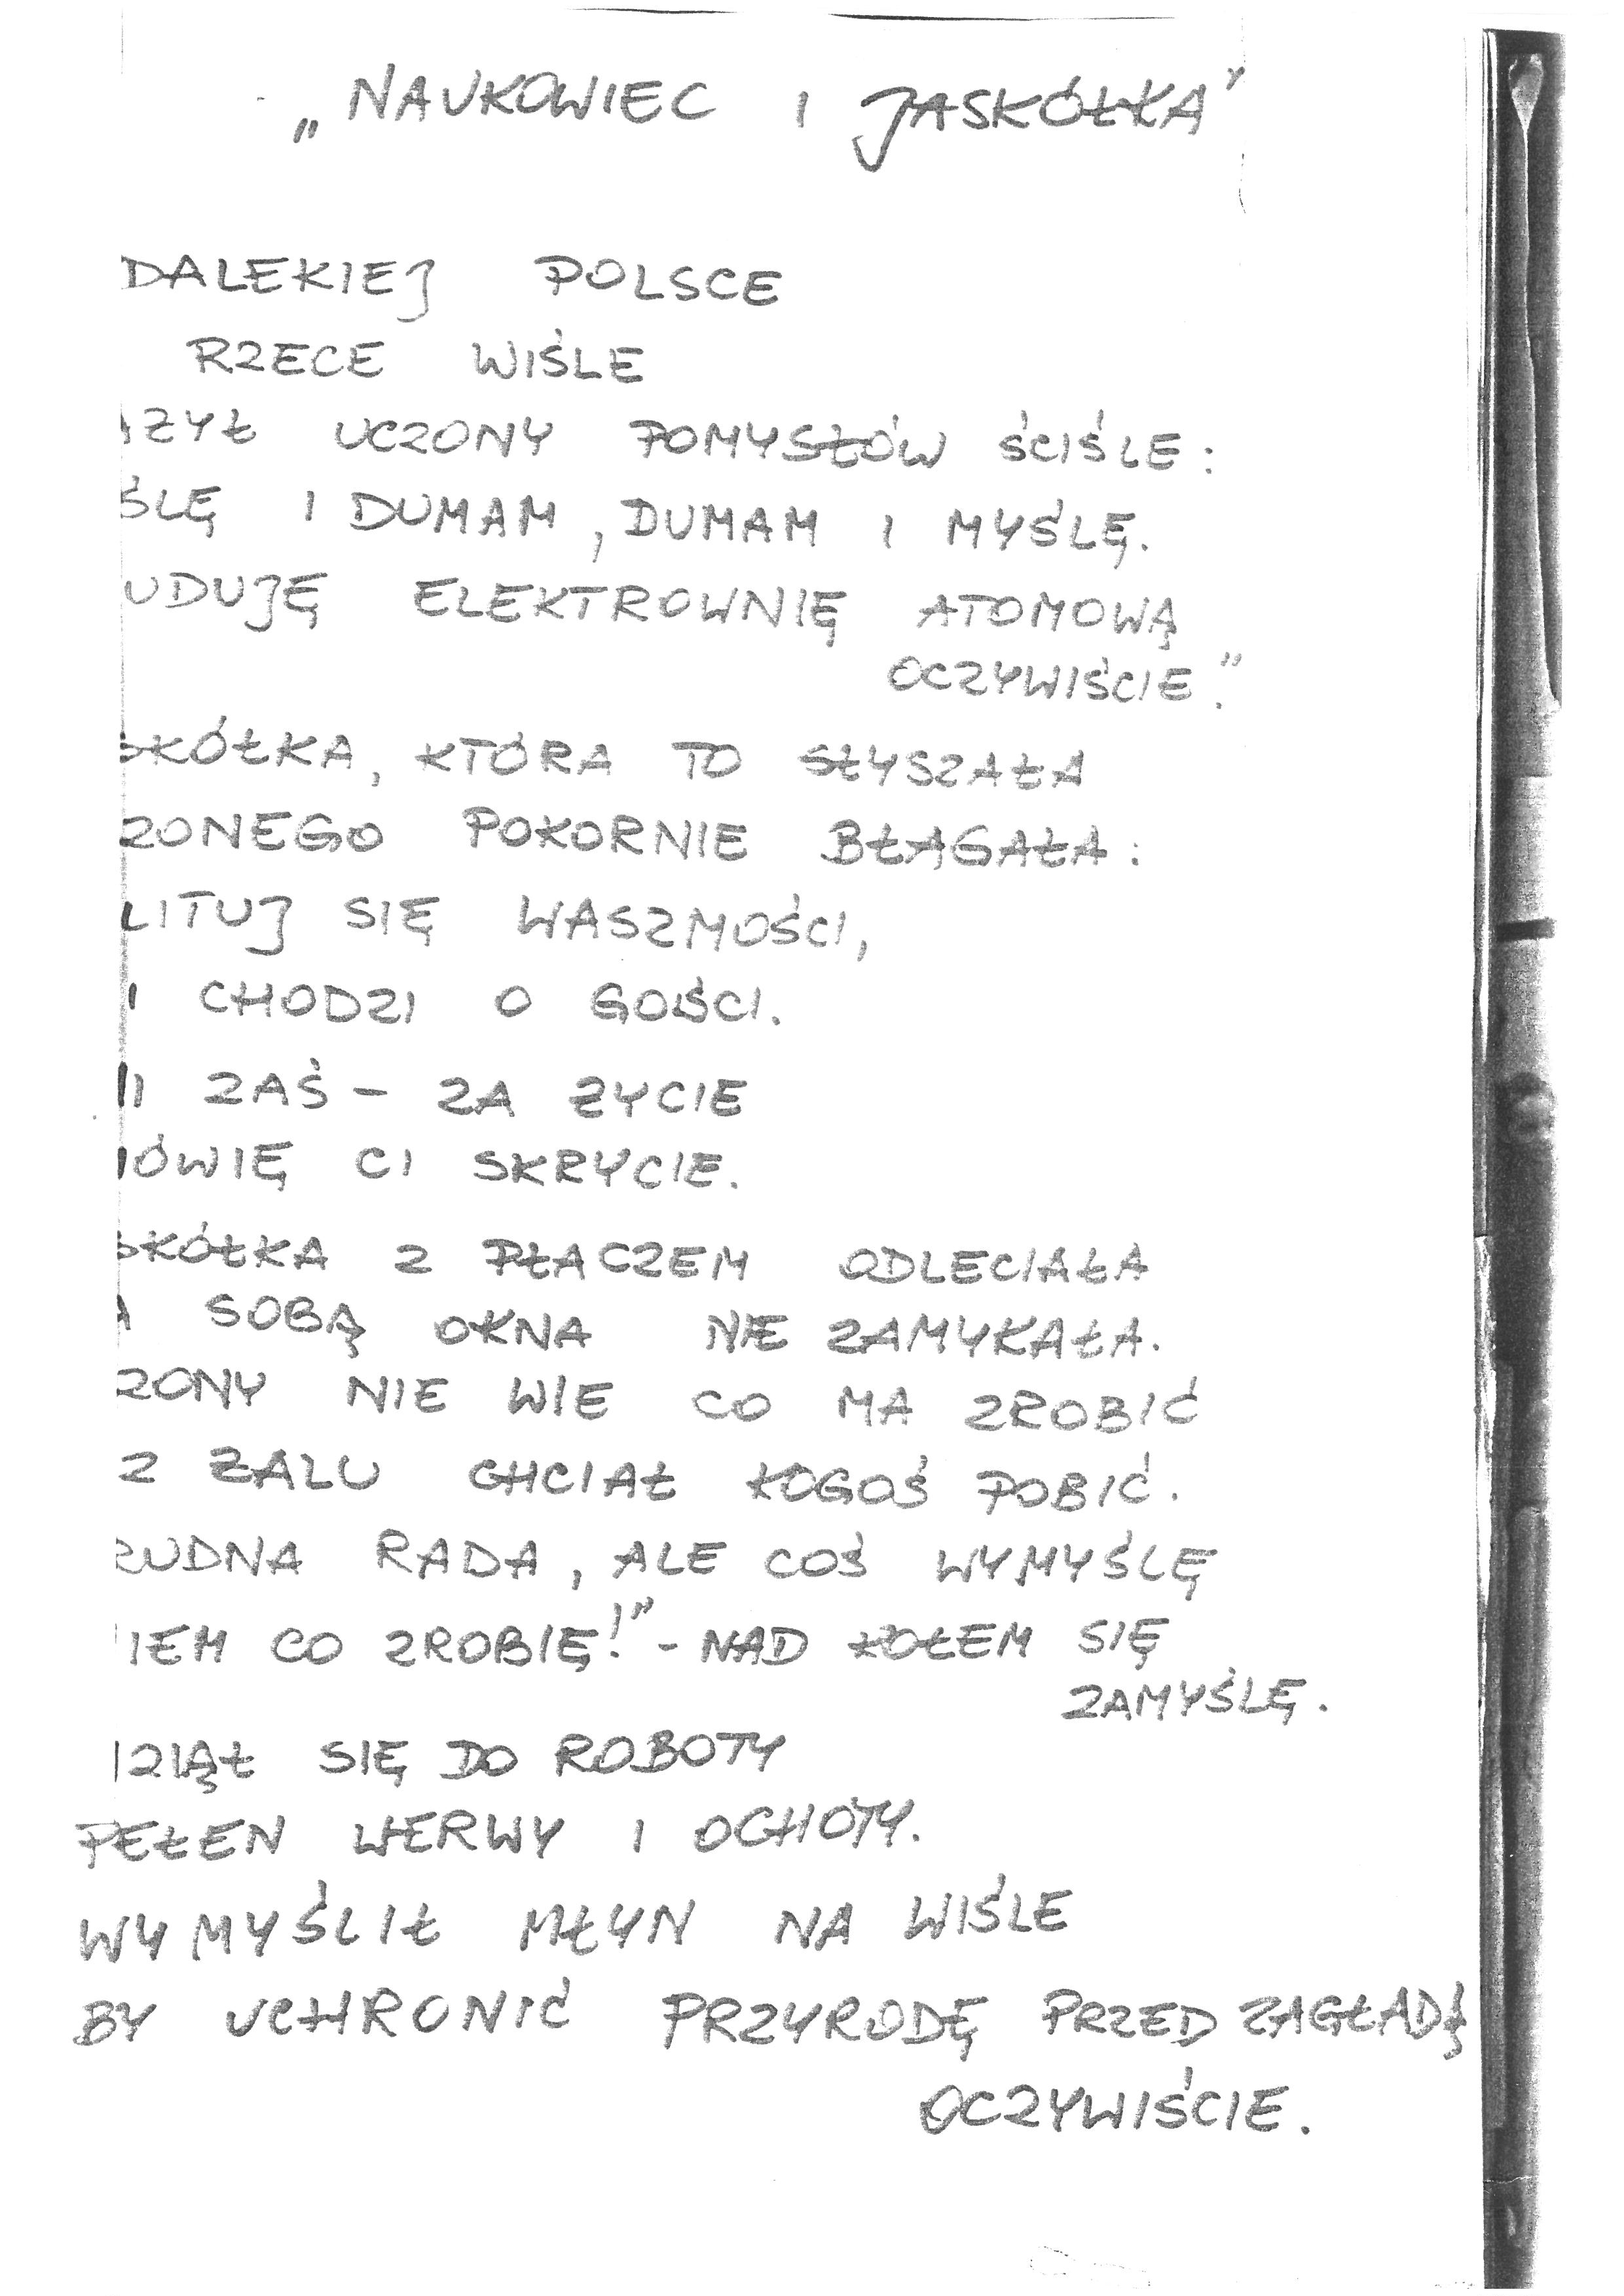 „NAUKOWIEC I JASKÓŁKA”
DALEKIEJ POLSCE
RZECE WIŚLE
AZYŁ UCZONY POMYSŁÓW ŚCIŚLE:
ŚLĘ I DUMAM, DUMAM I MYŚLĘ.
UDUJĘ ELEKTROWNIĘ ATOMOWĄ
OCZYWIŚCIE."
SKÓŁKA, KTÓRA TO SŁYSZAŁA
ZONEGO POKORNIE BŁAGAŁA:
LITUJ SIĘ WASZMOŚCI,
I CHODZI O GOŚCI.
II ZAŚ - ZA ŻYCIE
ÓWIĘ CI SKRYCIE.
SKÓŁKA Z PŁACZEM ODLECIAŁA
A SOBĄ OKNA NIE ZAMYKAŁA.
ZONY NIE WIE CO MA ZROBIĆ
Z ŻALU CHCIAŁ KOGOŚ POBIĆ.
RUDNA RADA, ALE COŚ WYMYŚLĘ
IEM CO ZROBIĘ!" - NAD KOŁEM SIĘ
ZAMYŚLĘ.
ZIĄŁ SIĘ DO ROBOTY
PEŁEN WERWY I OCHOTY.
WYMYŚLIŁ MŁYN NA WIŚLE
BY UCHRONIĆ PRZYRODĘ PRZED ZAGŁADĄ
OCZYWIŚCIE.